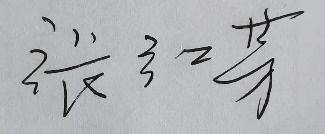 张红芳